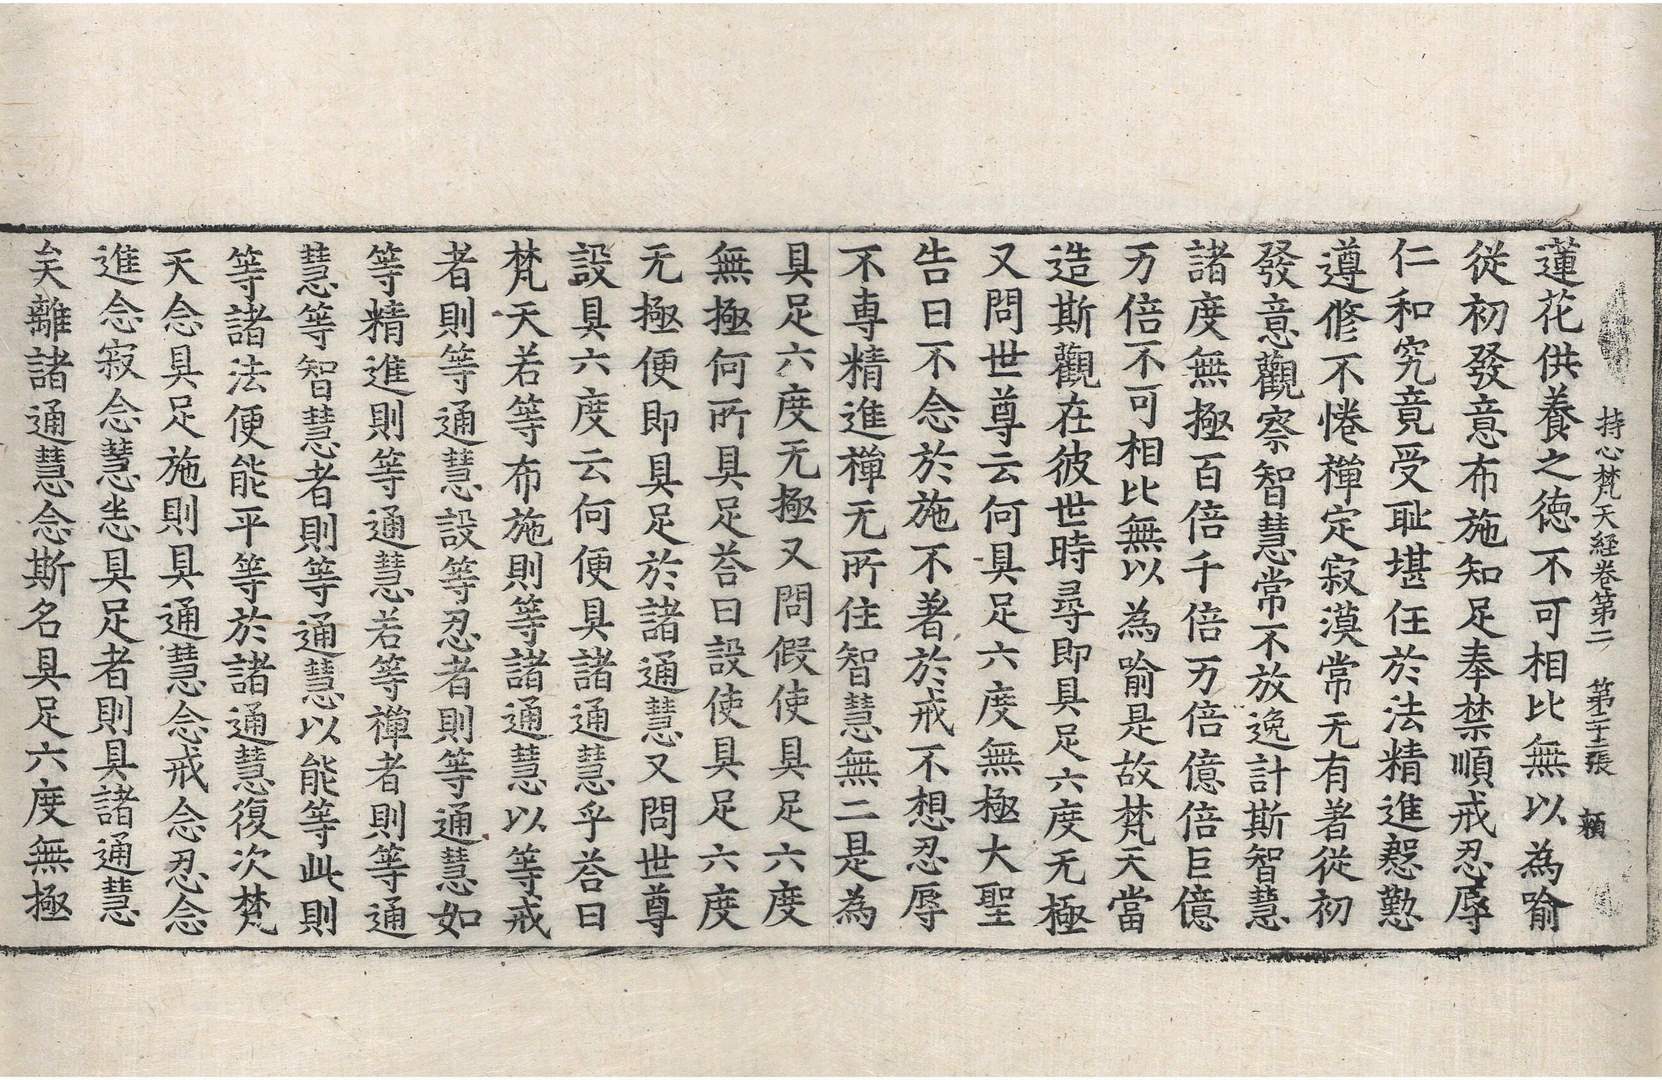 持心梵天經卷第二 第十二張 頼
蓮花供養之德不可相比無以為喻
從初發意布施知足奉禁順戒忍辱
仁和究竟受耻堪任於法精進慇懃
遵修不惓禪定寂漠常无有著從初
發意觀察智慧常不放逸計斯智慧
諸度無極百倍千倍万倍億倍巨億
万倍不可相比無以為喻是故梵天當
造斯觀在彼世時尋即具足六度无極
又問世尊云何具足六度無極大聖
告曰不念於施不著於戒不想忍辱
不專精進禪无所住智慧無二是為
具足六度无極又問假使具足六度
無極何所具足荅曰設使具足六度
无極便即具足於諸通慧又問世尊
設具六度云何便具諸通慧乎荅曰
梵天若等布施則等諸通慧以等戒
者則等通慧設等忍者則等通慧如
等精進則等通慧若等禪者則等通
慧等智慧者則等通慧以能等此則
等諸法便能平等於諸通慧復次梵
天念具足施則具通慧念戒念忍念
進念寂念慧悉具足者則具諸通慧
矣離諸通慧念斯名具足六度無極